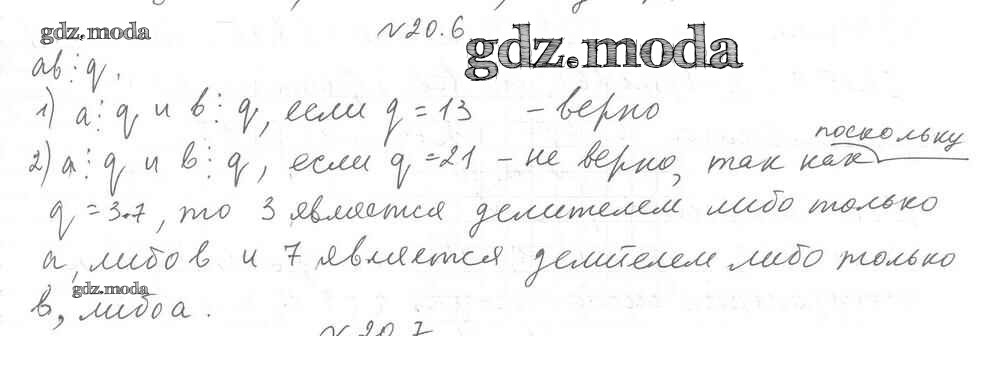 №20.6
gdz.moda
gdz.moda
ab⋮q.
1) a⋮q и b⋮q, если q = 13 - верно
поскольку
2) a⋮q и b⋮q, если q = 21 - не верно, так как
q = 3·7, то 3 является делителем либо только
a, либо b и 7 является делителем либо только
gdz.moda
b, либо a.
№20.7